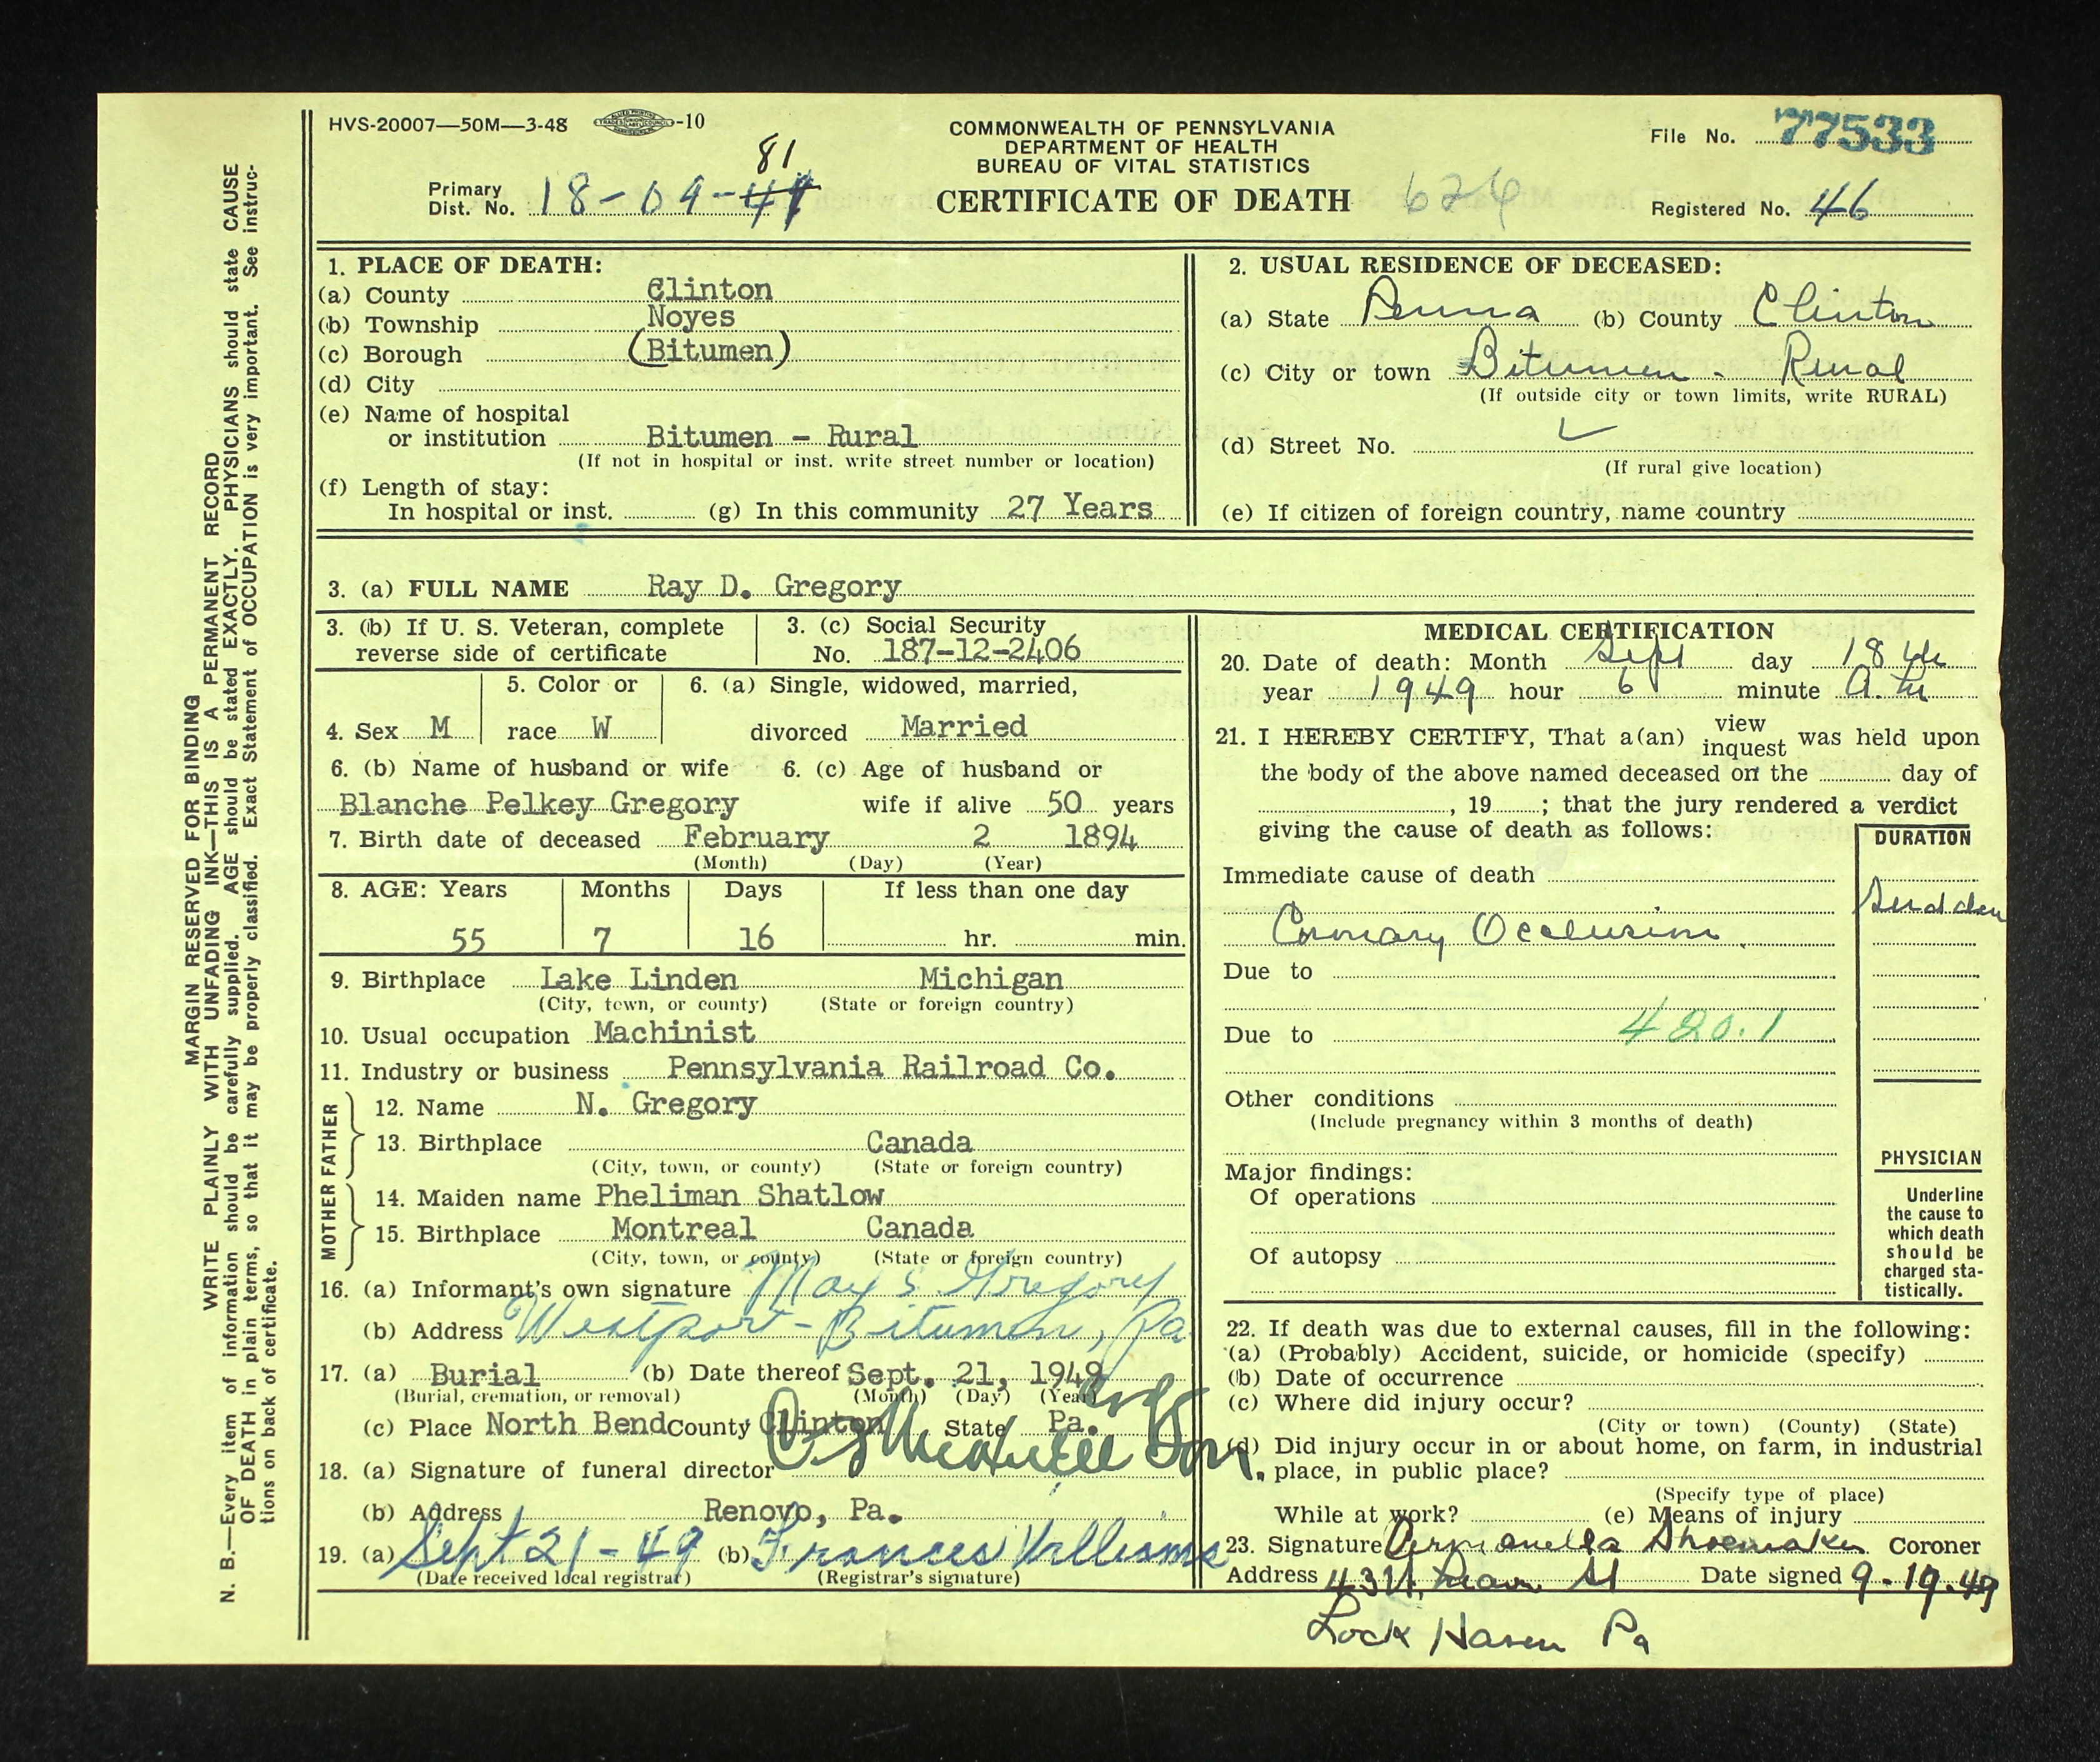 HVS-20007—50M—3-48 -10
COMMONWEALTH OF PENNSYLVANIA
DEPARTMENT OF HEALTH
BUREAU OF VITAL STATISTICS
CERTIFICATE OF DEATH
File No. 77533
81
Primary
Dist. No. 18-09-41
Registered No. 46
1. PLACE OF DEATH:
(a) County Clinton
(b) Township Noyes
(c) Borough (Bitumen)
(d) City
(e) Name of hospital
or institution Bitumen - Rural
(If not in hospital or inst. write street number or location)
(f) Length of stay:
In hospital or inst. (g) In this community 27 Years
2. USUAL RESIDENCE OF DECEASED:
(a) State Penna (b) County Clinton
(c) City or town Bitumen - Rural
(If outside city or town limits, write RURAL)
(d) Street No.
(If rural give location)
(e) If citizen of foreign country, name country
3. (a) FULL NAME Ray D. Gregory
3. (b) If U. S. Veteran, complete
reverse side of certificate
3. (c) Social Security
No. 187-12-2406
4. Sex M
5. Color or
race W
6. (a) Single, widowed, married,
divorced Married
6. (b) Name of husband or wife
Blanche Pelkey Gregory
6. (c) Age of husband or
wife if alive 50 years
7. Birth date of deceased February 2 1894
(Month) (Day) (Year)
8. AGE: Years Months Days If less than one day
55 7 16 hr. min.
9. Birthplace Lake Linden Michigan
(City, town, or county) (State or foreign country)
10. Usual occupation Machinist
11. Industry or business Pennsylvania Railroad Co.
FATHER
12. Name N. Gregory
13. Birthplace Canada
(City, town, or county) (State or foreign country)
MOTHER
14. Maiden name Pheliman Shatlow
15. Birthplace Montreal Canada
(City, town, or county) (State or foreign country)
16. (a) Informant's own signature May S. Gregory
(b) Address Westport - Bitumen, Pa
17. (a) Burial (b) Date thereof Sept. 21, 1949
(Burial, cremation, or removal) (Month) (Day) (Year)
(c) Place North Bend County Clinton State Pa.
18. (a) Signature of funeral director Son.
(b) Address Renovo, Pa.
19. (a) Sept 21-49 (b) Frances Williams
(Date received local registrar) (Registrar's signature)
MEDICAL CERTIFICATION
20. Date of death: Month Sept day 18 th
year 1949 hour 6 minute A. M
21. I HEREBY CERTIFY, That a(an) view inquest was held upon
the body of the above named deceased on the day of
, 19 ; that the jury rendered a verdict
giving the cause of death as follows:
DURATION
Immediate cause of death
Sudden
Coronary Occlusion
Due to
Due to 420.1
Other conditions
(Include pregnancy within 3 months of death)
Major findings:
Of operations
Of autopsy
PHYSICIAN
Underline
the cause to
which death
should be
charged sta-
tistically.
22. If death was due to external causes, fill in the following:
(a) (Probably) Accident, suicide, or homicide (specify)
(b) Date of occurrence
(c) Where did injury occur?
(City or town) (County) (State)
(d) Did injury occur in or about home, on farm, in industrial
place, in public place?
(Specify type of place)
While at work? (e) Means of injury
23. Signature Shoemaker Coroner
Address St Date signed 9-19-49
Lock Haven Pa
MARGIN RESERVED FOR BINDING
WRITE PLAINLY WITH UNFADING INK—THIS IS A PERMANENT RECORD
N. B.—Every item of information should be carefully supplied. AGE should be stated EXACTLY. PHYSICIANS should state CAUSE
OF DEATH in plain terms, so that it may be properly classified. Exact Statement of OCCUPATION is very important. See instruc-
tions on back of certificate.